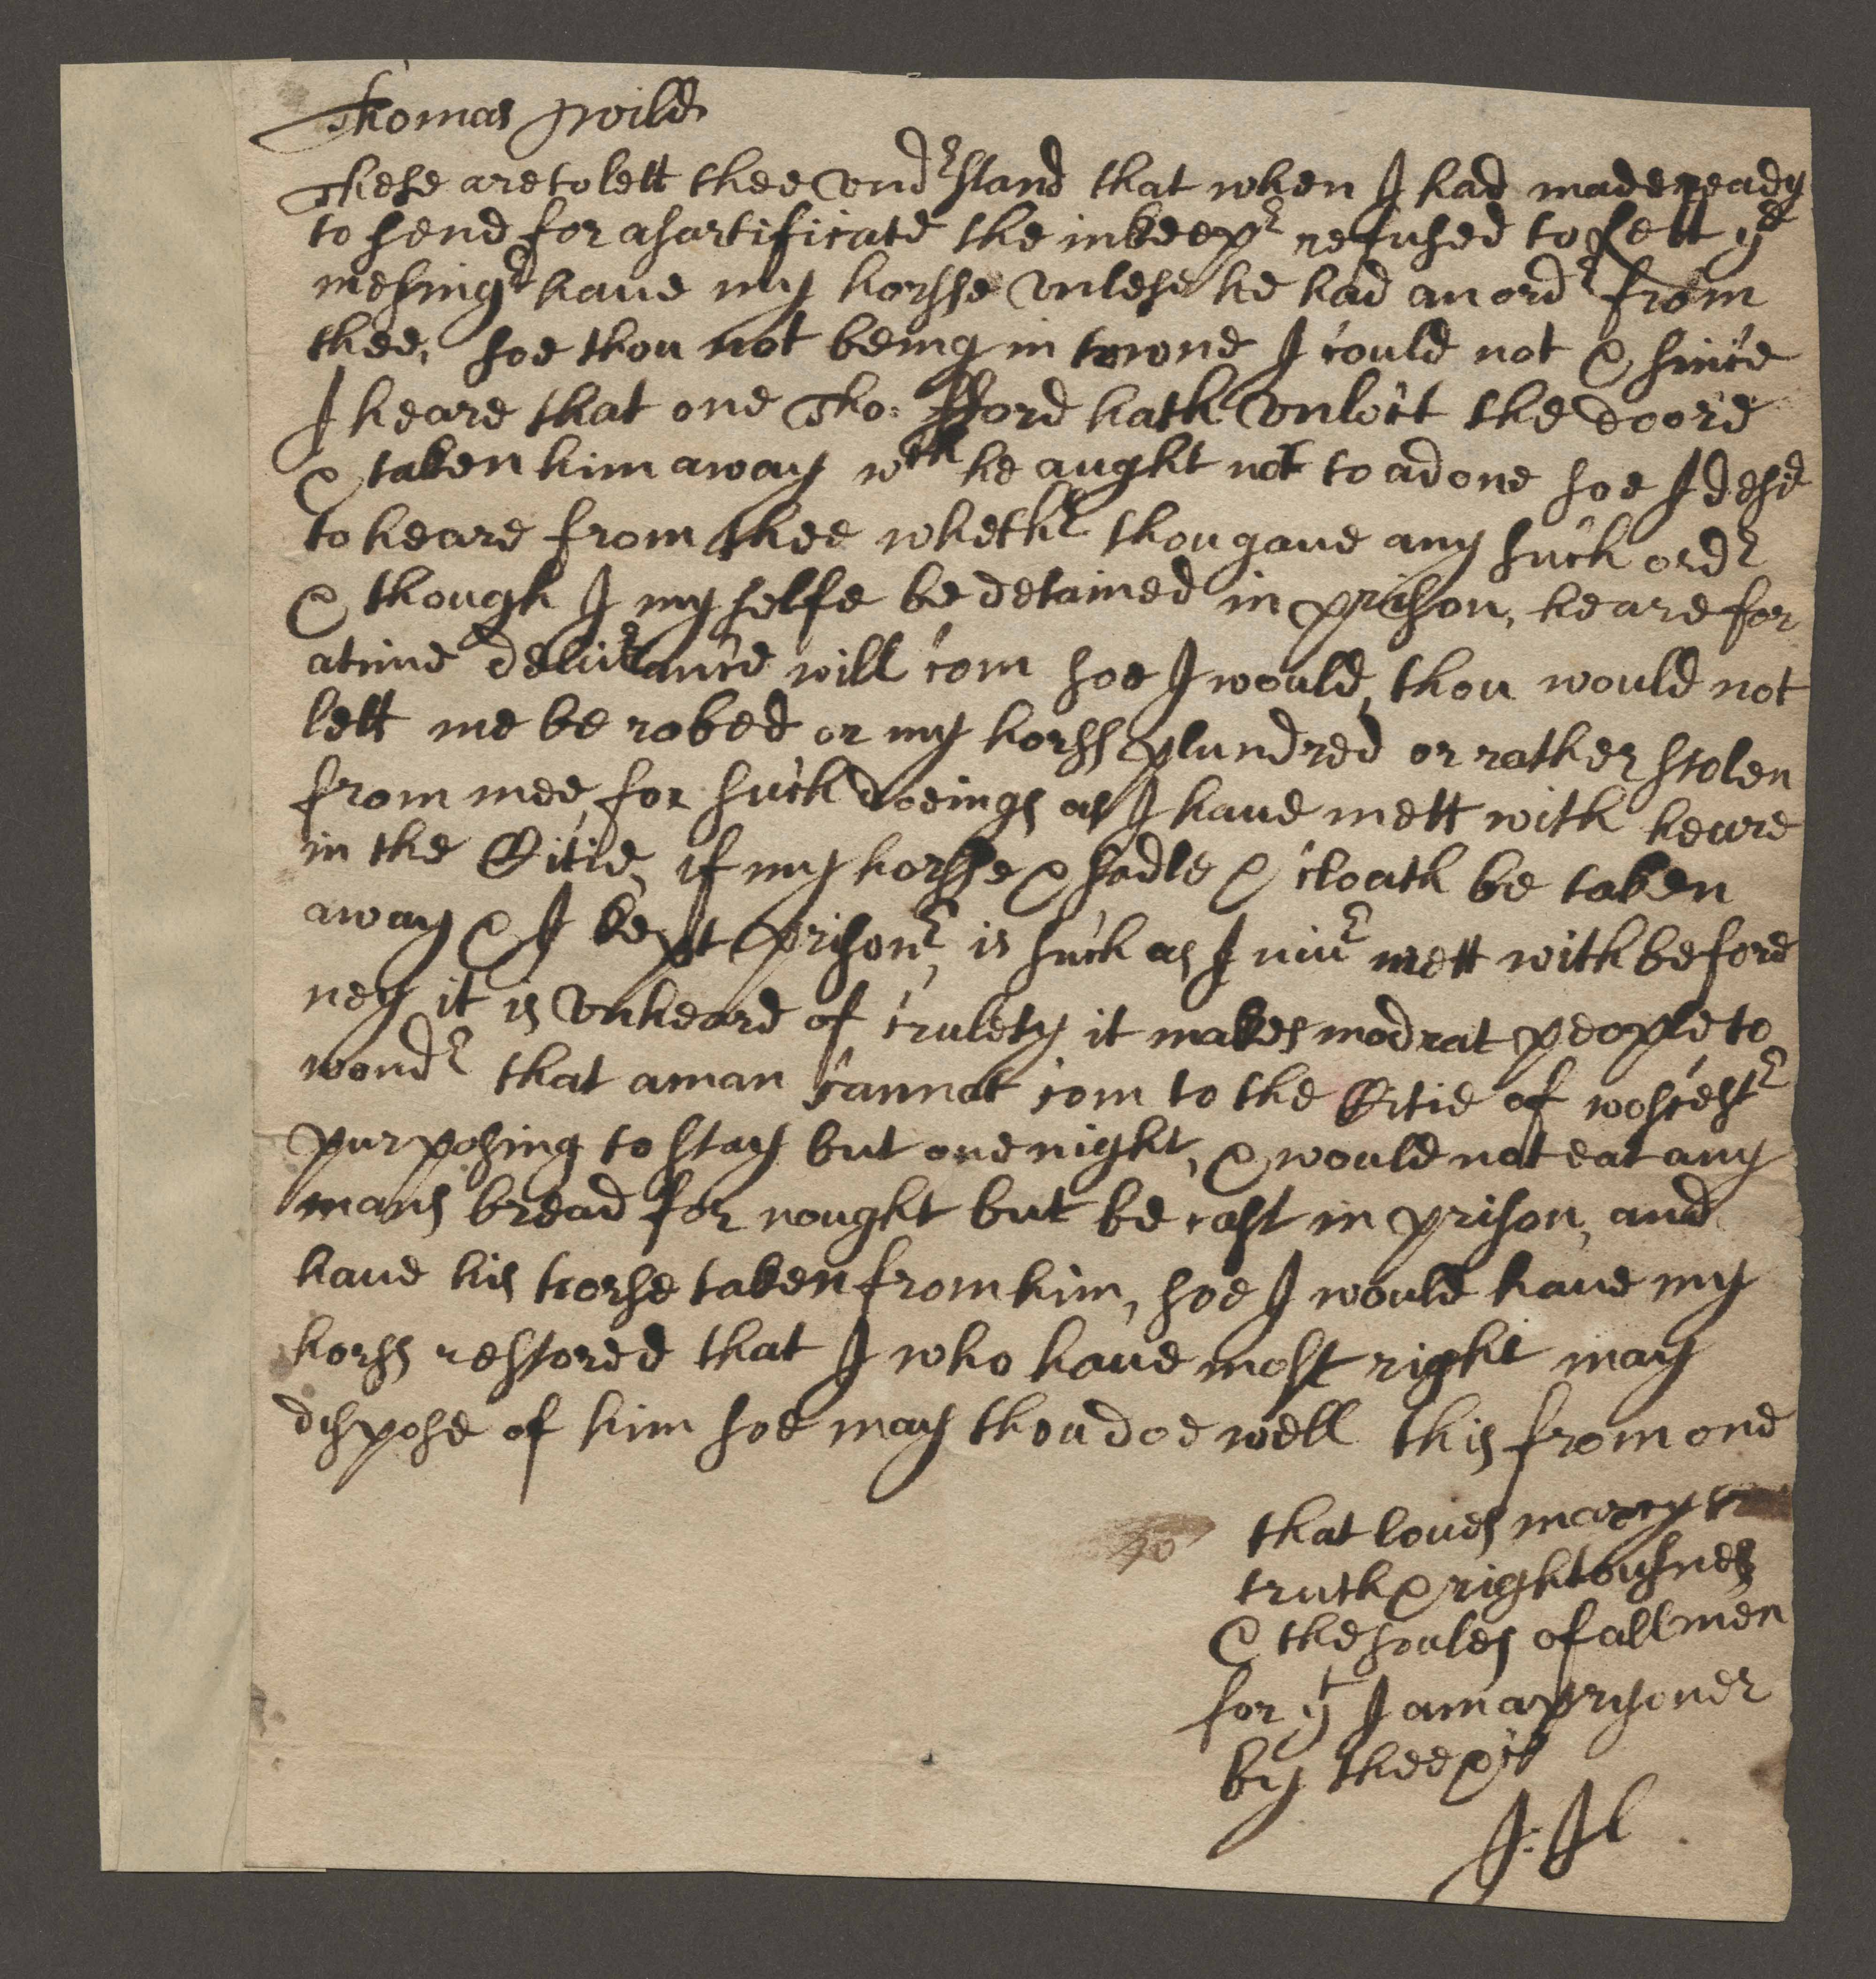 Thomas Wild
These are to lett thee vndrstand that when I had made ready
to send for a sartificate the inkeepr refused to lett ye
mesingr haue my horsse vnlese he had an ordr from
thee, soe thou not being in towne I could not & since
I heare that one Tho: fford hath vnloct the doore
& taken him away wch he aught not to adone soe I desd
to heare from thee whethr thou gaue any such ordr
& though I my selfe be detained in prison, heare for
a time deliurance will com soe I would, thou would not
lett me be robed or my horss plundred or rather stolen
from mee, for such doeings as I haue mett with heare
in the Citie, if my horsse & sadle & cloath be taken
away & I kept prisonr, is such as I niur mett with before
ney it is vnheard of crulety it makes modrat people to
wondr that a man cannot com to the Citie of woscestr
purposing to stay but one night, & would not eat any
mans bread for nought but be cast in prison, and
haue his horse taken from him, soe I would haue my
horss restored that I who haue most right may
dispose of him soe may thou doe well this from one
that loues marcy
truth & rightousnes
& the soules of all men
for yt I am a prysoner
by thee